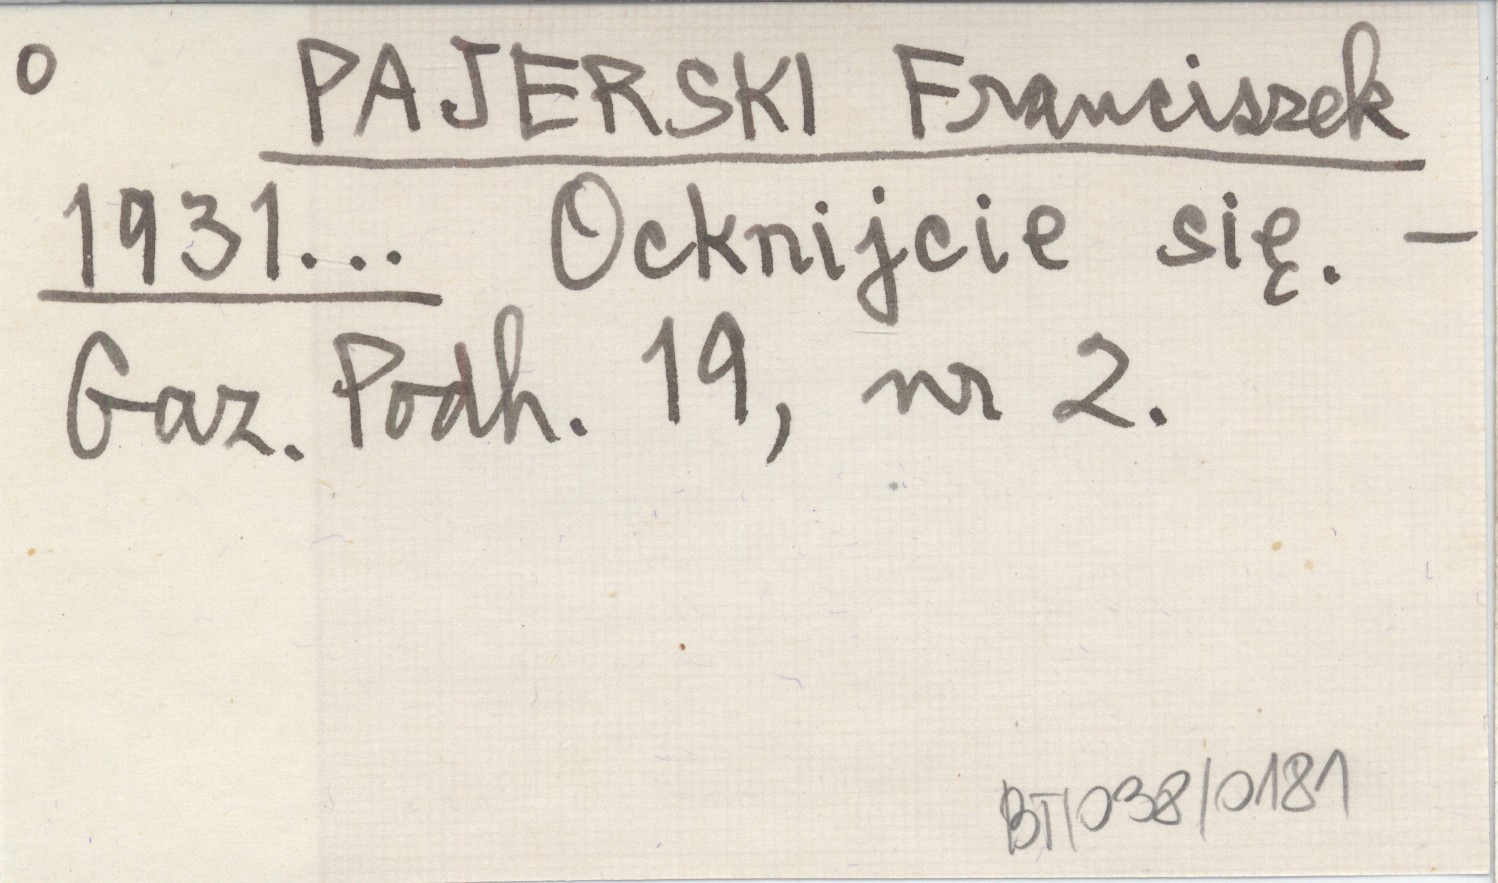 o PAJERSKI Franciszek
1931... Ocknijcie się. –
Gaz. Podh. 19, nr 2.
BT/038/0181